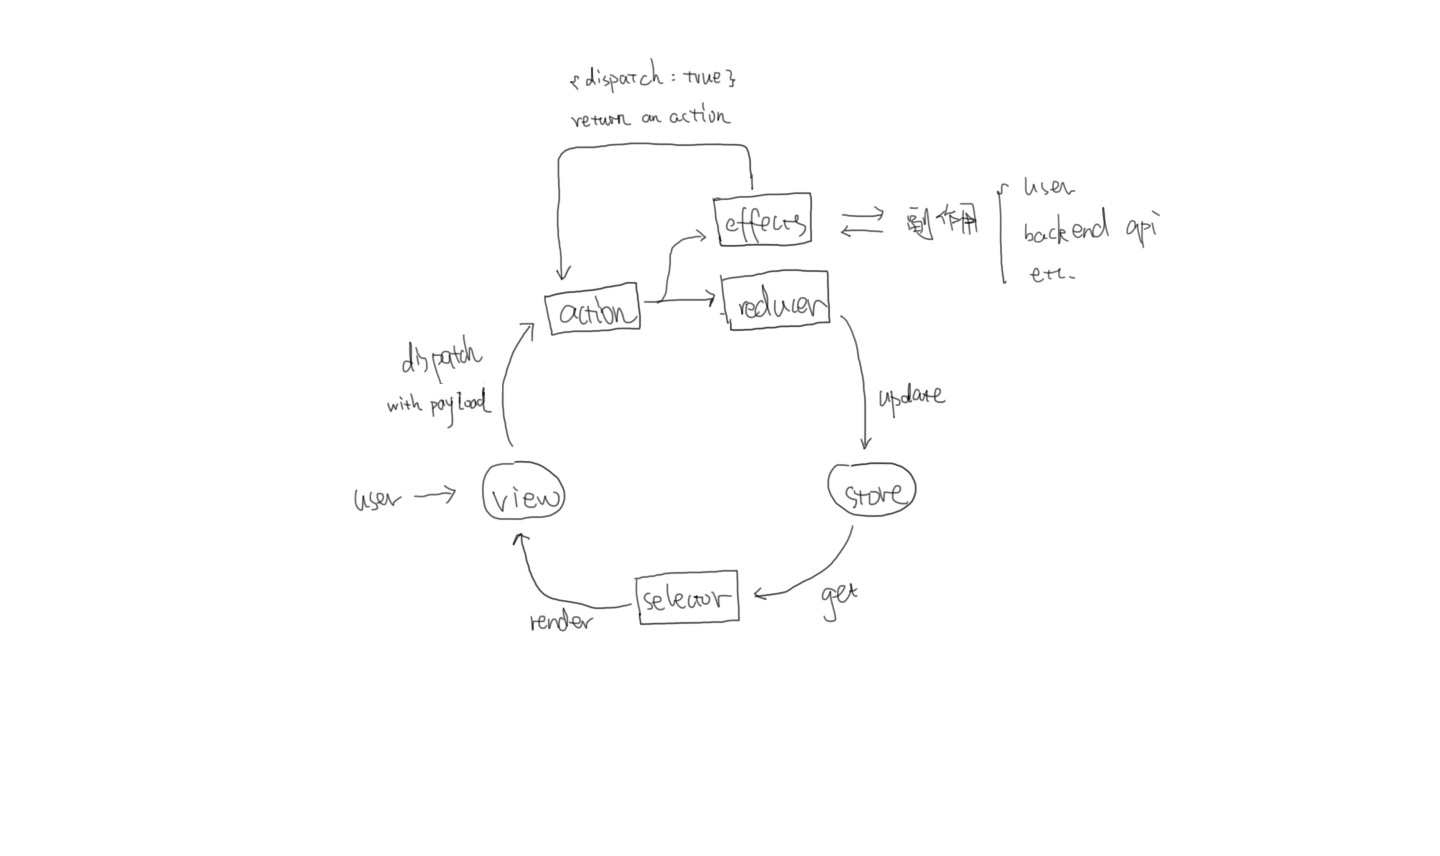 {dispatch : true}
return an action
effects
副作用
user
backend api
etc.
action
reducer
dispatch
with payload
update
user
view
store
selector
get
render